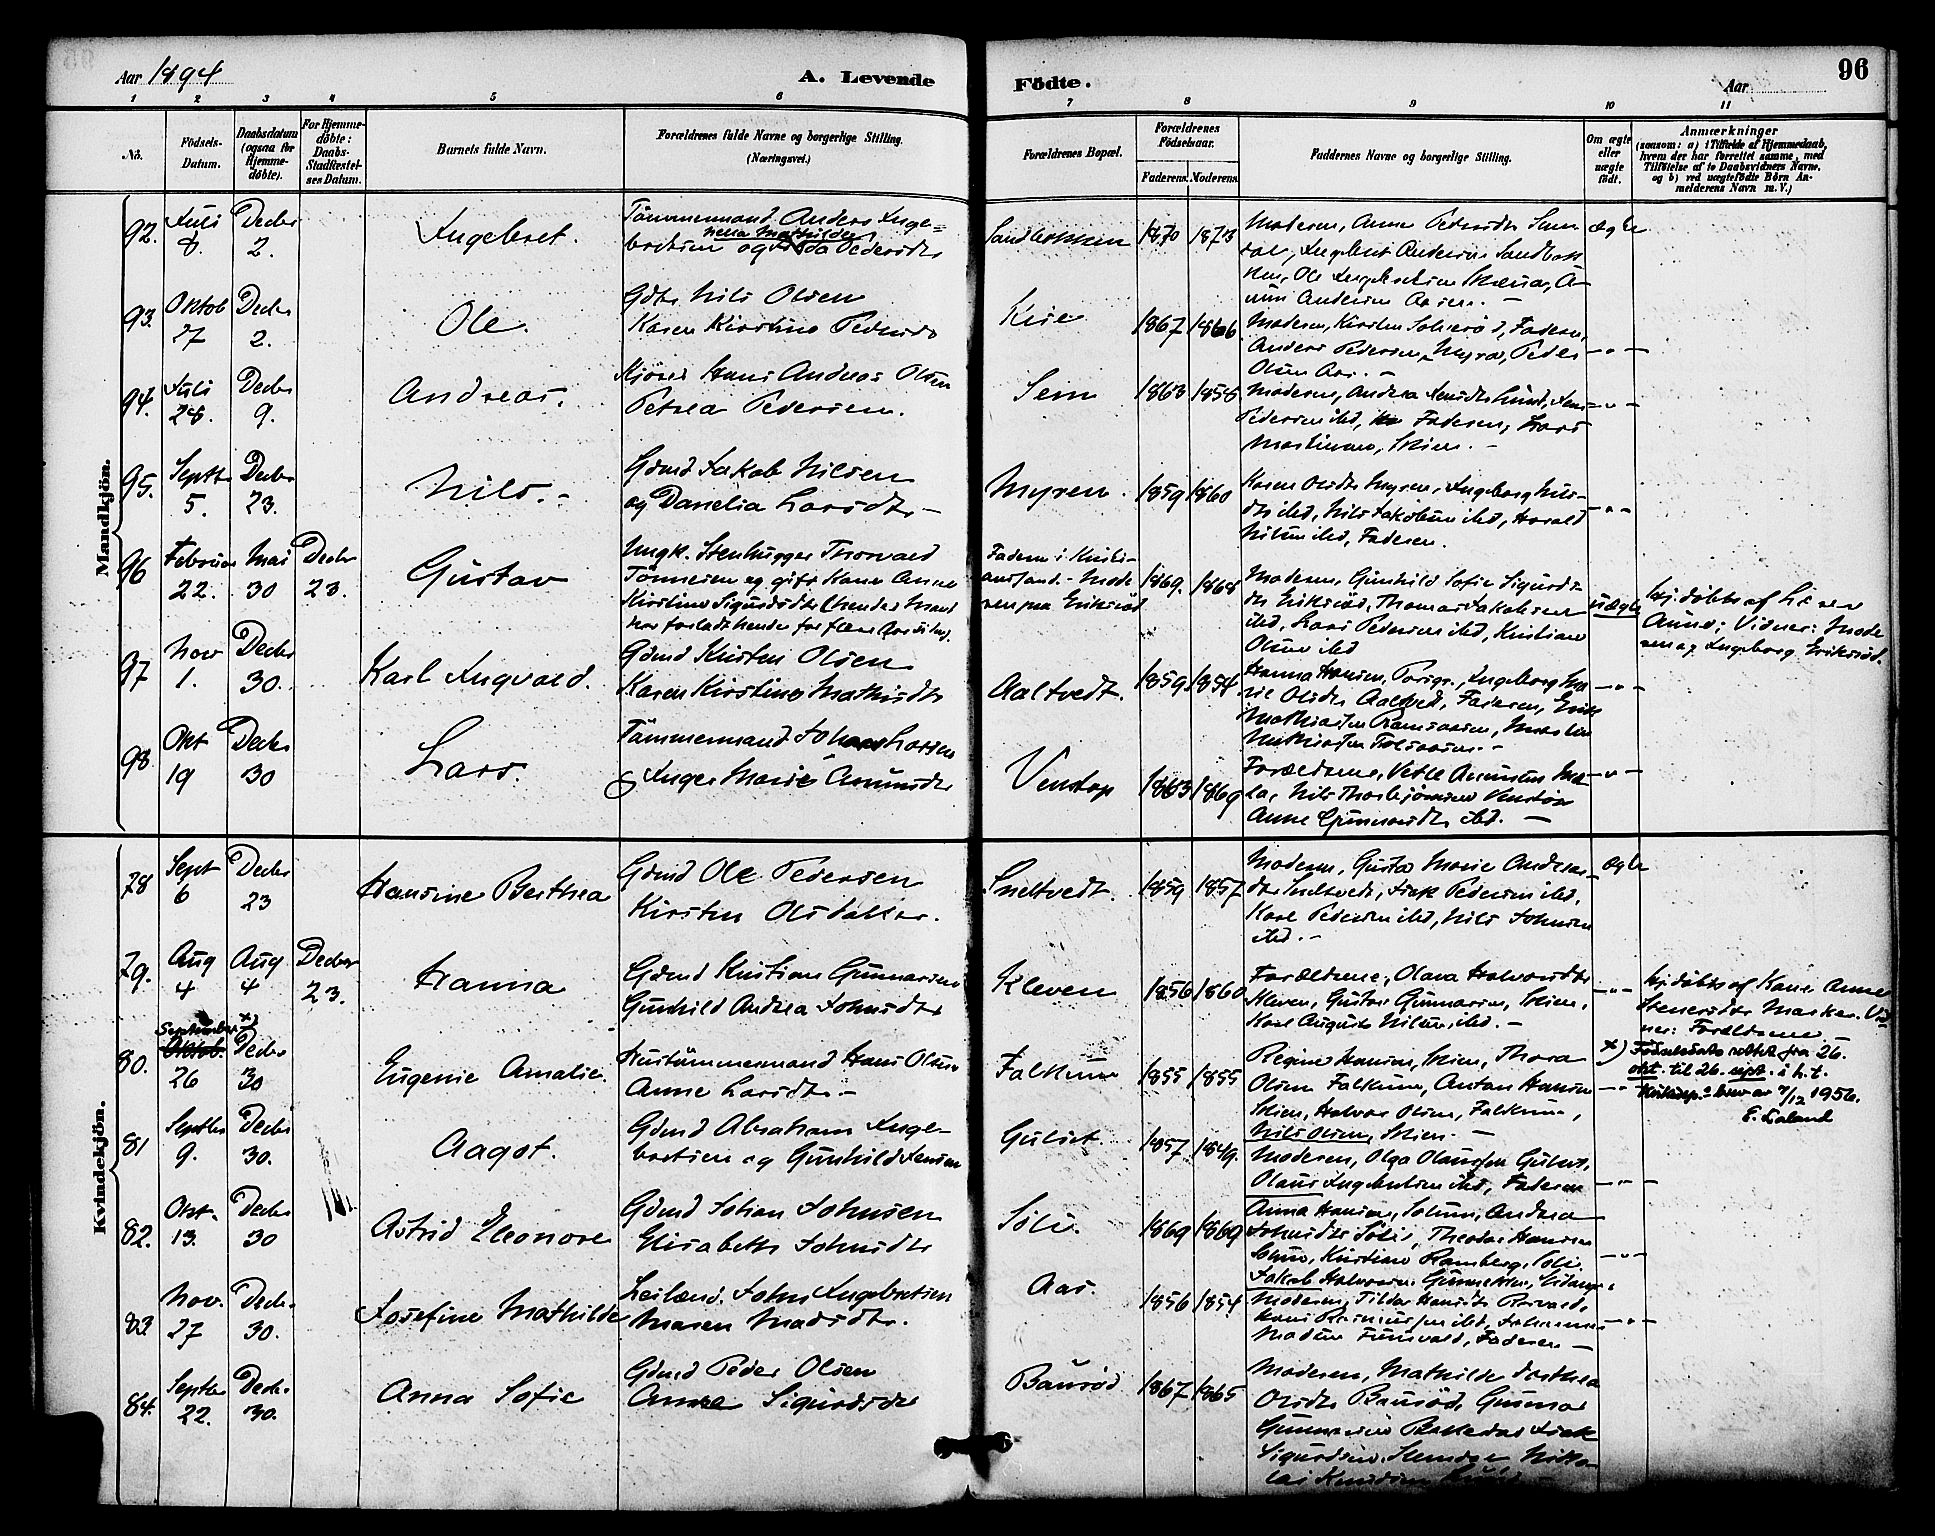 Aar 1894
A. Levende
Födte.
Aar
96
1 2 3 4 5 6 7 8 9 10 11
No.
Födsels-
Datum.
Daabsdatum
(ogsaa for
Hjemme-
döbte).
For Hjemme-
döbte:
Daabs-
Stadfæstel-
ses Datum.
Barnets fulde Navn.
Forældrenes fulde Navne og borgerlige Stilling.
(Næringsvei.)
Forældrenes Bopæl.
Forældrenes
Födselsaar.
Faderens. Moderens.
Faddernes Navne og borgerlige Stilling.
Om ægte
eller
uægte
födt.
Anmærkninger
saasom: a) i Tilfælde af Hjemmedaab,
hvem der har forrettet samme, med
Tilföielse af to Daabsvidners Navne,
og b) ved uægtefödte Börn An-
melderens Navn m. V.)
Mandkjön.
92. Juli 8. Decbr 2.
Ingebret.
Tömmermand Anders Inge-
bretsen og Pedersdtr
Sandbakken 1870 1873
Moderen, Anne Pedersdtr
Ingebret Andersen Sandbak-
ken, Ole Ingebretsen
Andersen Aasen. -
ægte
93. Oktob 27 Decbr 2.
Ole.
Gbr. Nils Olsen
Karen Kirstine Pedersdtr
Kise 1867 1866
Moderen, Kirsten Faderen,
Anders Pedersen, Myra, Peder
Olsen Aas. -
- " -
94. Juli 28. Decbr 9.
Andreas.
Hans Andreas Olsen
Petrea Pedersen.
Sem 1863 1858
Moderen, Andrea Jensdtr Lund, Jens
Pedersen ibd, Faderen, Lars
Martinsen, Skien. -
- " -
95. Septbr 5. Decbr 23.
Nils. -
Gbmd Jakob Nilsen
og Danelia Larsdtr -
Myren. 1859 1860
Karen Olsdtr Myren, Ingeborg Nils-
dtr ibd, Nils Jakobsen ibd, Harald
Nilsen ibd, Faderen.
- " -
96 Februar 22. Mai 30 Decbr 23.
Gustav
Ungk. Stenhugger Thorvald
Tönnesen og gift Kone Anne
Kirstine Sigurdsdtr (hendes Mand
har forladt hende for flere Aar siden).
Faderen i Kristi-
ansand. - Mode-
ren paa Eriksröd
1869. 1868
Moderen, Gunhild Sofie Sigurds-
dtr Eriksröd, Thomas Jakobsen
ibd, Lars Pedersen ibd, Kristian
Olsen ibd
uægte
Hj. döbt af
Anne; Vidner: Mode-
ren og Ingeborg Eriksröd.
97 Nov 1. Decbr 30.
Karl Ingvald.
Gbmd Kristen Olsen
Karen Kirstine Mathisdtr
Aaltvedt. 1859. 1854
Hanna Hansen, Porsgr., Ingeborg Ma-
rie Olsdtr Aaltvedt, Faderen, Erik
Mathiasen Martin
Mathiasen
- " -
98 Okt 19 Decbr 30
Lars.
Tömmermand Larsen
og Inger Marie Amundsdtr
Venstöp 1863 1869
Forældrene, Vetle Amundsen
Nils Thorbjörnsen Venstöp
Anne Gunnersdtr ibd. -
- " -
Kvindekjön.
78 Sept 6 Decbr 23
Hansine Berthea
Gbmd Ole Pedersen
Kirsten Olsdatter.
Sneltvedt. 1859 1857
Moderen, Gusta Marie Andreas-
dtr Sneltvedt, Isak Pedersen ibd,
Karl Pedersen ibd, Nils Johnsen
ibd. -
ægte
79. Aug 4 Aug 4 Decbr 23.
Hanna
Gbmd Kristian Gunnarsen
Gunhild Andrea Johnsdtr
Kleven 1856 1860
Forældrene, Olava Halvorsdtr
Kleven, Gustav Gunnarsen, Skien,
Karl August Nilsen ibd. -
- " -
Hj. döbt af Kone Anne
Stenersdtr Marker. Vid-
ner: Forældrene
80. September x) Oktob. 26 Decbr 30
Eugenie Amalie.
Hustömmermand Hans Olsen
Anne Larsdtr -
Falkum 1855 1855
Regine Hansen, Skien, Thora
Olsen Falkum, Anton Hansen
Skien, Halvor Olsen, Falkum,
Nils Olsen, Skien. -
- "
x) Födselsdato rettet fra 26.
okt. til 26. sept. i h. t.
Kirkedep.s brev av 7/12 1956.
E. Laland
81 Septbr 9. Decbr 30.
Aagot.
Gbmd Abraham Inge-
bretsen og Gunhild Jensen
Gulset 1857 1849.
Moderen, Olga Olaussen Gulset,
Olaus Ingebretsen ibd, Faderen
- " -
82. Okt. 13. Decbr 30
Astrid Eleonore
Gbmd Johan Johnsen
Elisabeth Johnsdtr
Söli. 1869 1869
Anna Hansen, Solum, Andrea
Johnsdtr Söli, Theodor Hansen
Solum, Kristian Ramberg, Söli.
Jakob Halvorsen
- " -
83 Nov. 27 Decbr 30.
Josefine Mathilde
Leilænd. John Ingebretsen
Maren Madsdtr.
Aas. 1856 1854
Moderen, Tilda Hansdtr
Hans Rasmussen ibd, Johannes
Madsen Faderen -
- " -
84. Septbr 22. Decbr 30.
Anna Sofie
Gbmd Peder Olsen
Anne Sigurdsdtr
Bauröd 1867 1865
Moderen, Mathilde Dorthea
Olsdtr Bauröd, Gunnar
Gunnarsen Bakkedal Isak
Sigurdsen Nikolai
Knudsen